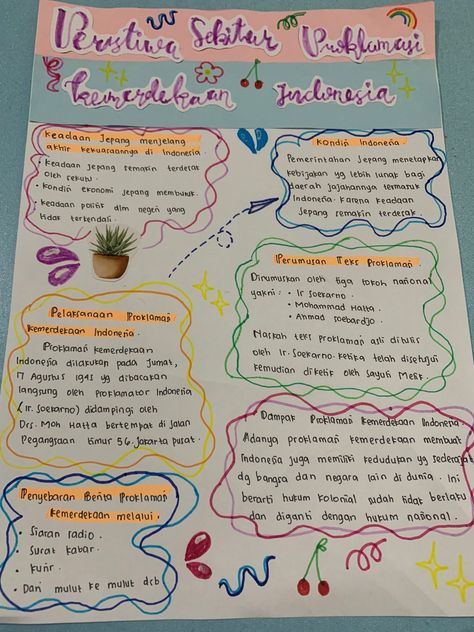 Peristiwa Sekitar Proklamasi
Kemerdekaan Indonesia
Keadaan Jepang menjelang
akhir kekuasaannya di Indonesia.
• Keadaan Jepang semakin terdesak
oleh sekutu.
• Kondisi ekonomi Jepang memburuk.
• keadaan politik dlm negeri yang
tidak terkendali.
Kondisi Indonesia.
Pemerintahan Jepang menetapkan
kebijakan yg lebih lunak bagi
daerah jajahannya termasuk
Indonesia. karena keadaan
Jepang semakin terdesak.
Perumusan Teks Proklamasi.
Dirumuskan oleh tiga tokoh nasional
yakni: • Ir Soekarno
• Mohammad Hatta
• Ahmad Soebardjo
Naskah teks proklamasi asli ditulis
oleh Ir. Soekarno. ketika telah disetujui
kemudian diketik oleh Sayuti Melik.
Pelaksanaan Proklamasi
Kemerdekaan Indonesia.
Proklamasi kemerdekaan
Indonesia dilakukan pada Jumat,
17 Agustus 1945 yg dibacakan
langsung oleh proklamator Indonesia
(Ir. Soekarno) didampingi oleh
Drs. Moh Hatta bertempat di jalan
Pegangsaan timur 56. Jakarta pusat.
Dampak Proklamasi Kemerdekaan Indonesia
Adanya proklamasi kemerdekaan membuat
Indonesia juga memiliki kedudukan yg sederajat
dg bangsa dan negara lain di dunia. Ini
berarti hukum kolonial sudah tidak berlaku
dan diganti dengan hukum nasional.
Penyebaran Berita Proklamasi
Kemerdekaan melalui.
• Siaran radio.
• Surat kabar.
• Kurir.
• Dari mulut ke mulut dsb